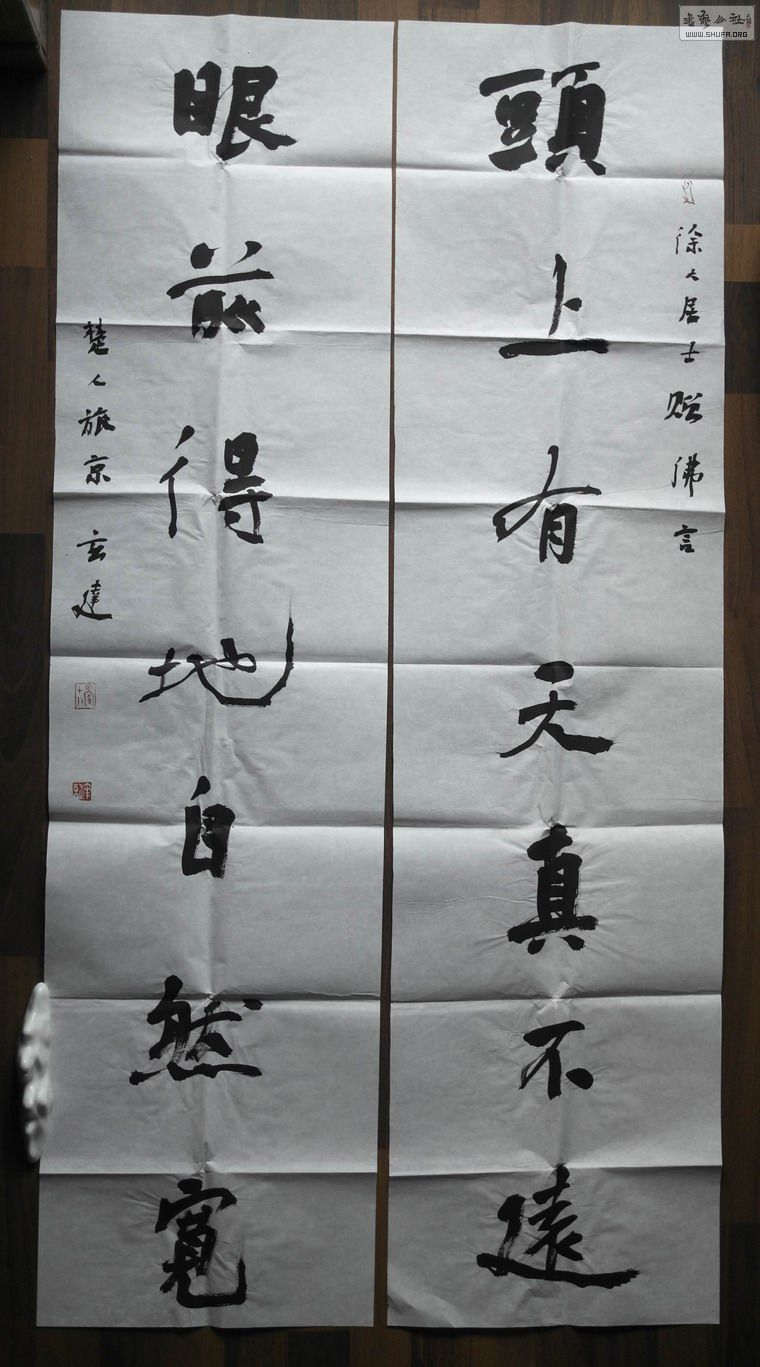 頭上有天真不遠
徐人居士贈佛言
眼前得地自然寬
楚人旅京 玄達
書藝公社
WWW.SHUFA.ORG